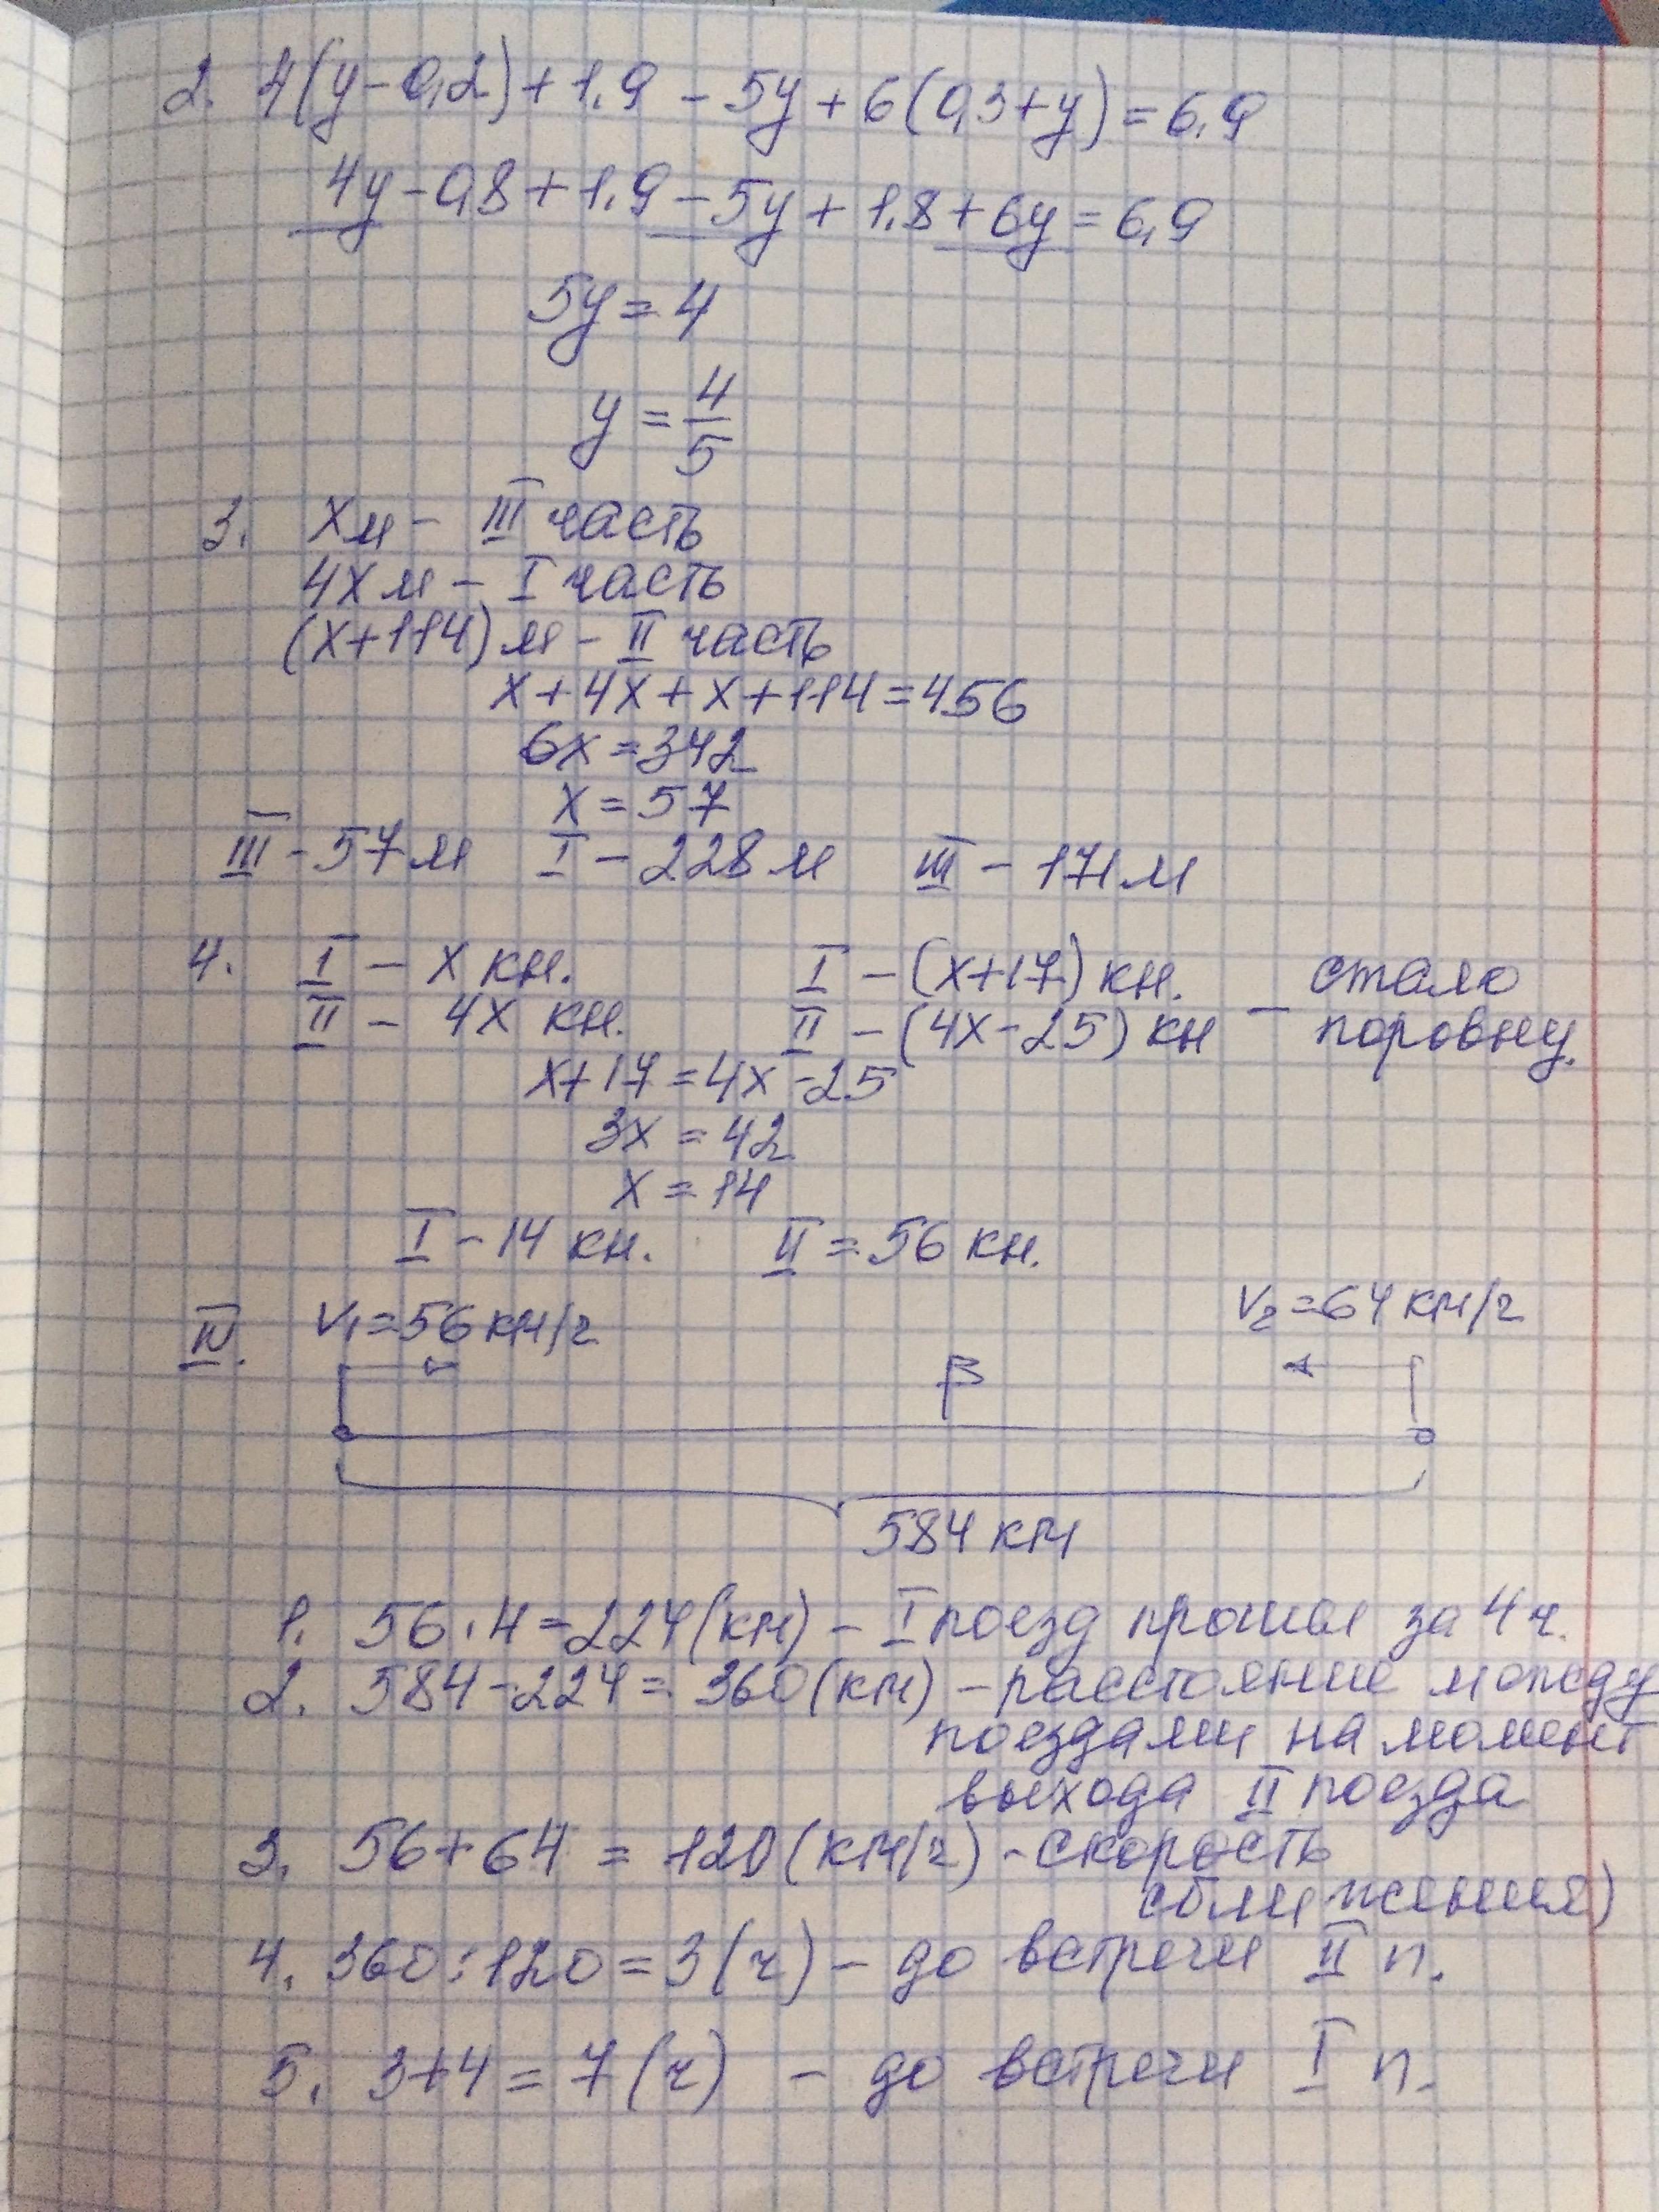 2. 4(y-0,2)+1,9-5y+6(0,3+y)=6,9
4y-0,8+1,9-5y+1,8+6y=6,9
5y=4
y=4/5
3. xм - III часть
4x м - I часть
(x+114) м - II часть
x+4x+x+114=456
6x=342
x=57
III - 57 м I - 228 м III - 171 м
4. I - x кн. I - (x+17) кн. - стало
II - 4x кн. II - (4x-25) кн поровну.
x+17=4x-25
3x=42
x=14
I - 14 кн. II = 56 кн.
IV. V₁=56 км/ч V₂=64 км/ч
584 км
1. 56·4=224(км) - I поезд прошел за 4 ч.
2. 584-224=360(км) - расстояние между
поездами на момент
выхода II поезда
3. 56+64=120(км/ч) - скорость
сближения)
4. 360:120=3(ч) - до встречи II п.
5. 3+4=7(ч) - до встречи I п.